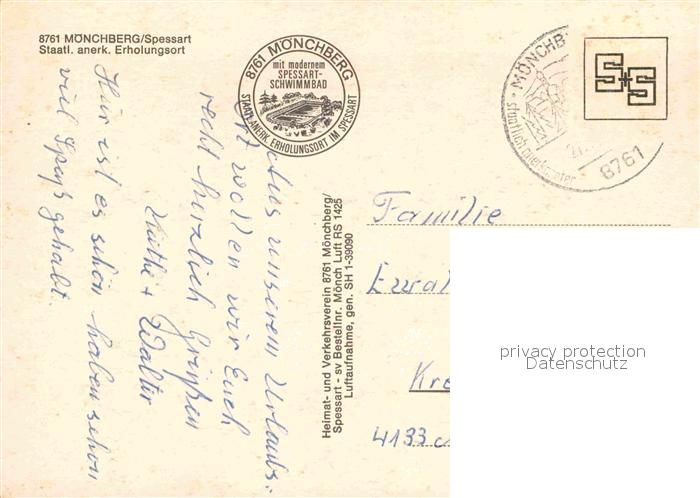 8761 MÖNCHBERG/Spessart
Staatl. anerk. Erholungsort
8761 MÖNCHBERG
mit modernem
SPESSART-
SCHWIMMBAD
STAATL. ANERK. ERHOLUNGSORT IM SPESSART
MÖNCHB
staatlich anerkannter
8761
S+S
Aus unserem Urlaubs-
ort wollen wir Euch
recht herzlich grüßen
Käthe + Walter
Hier ist es schön haben schon
viel Spaß gehabt.
Heimat- und Verkehrsverein 8761 Mönchberg/
Spessart - sv Bestellnr. Mönch Luft RS 1425
Luftaufnahme, gen. SH 1-39090
Familie
Ewal
Kre
4133
privacy protection
Datenschutz